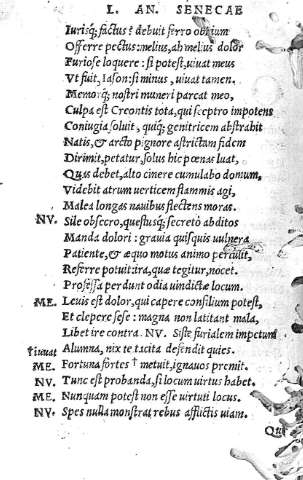 L. AN. SENECAE
Iurisq́; factus? debuit ferro obuium
Offerre pectus: melius, ah melius dolor
Furiose loquere: si potest, uiuat meus
Vt fuit, Iason: si minus, uiuat tamen.
Memorq́; nostri muneri parcat meo,
Culpa est Creontis tota, qui sceptro impotens
Coniugia soluit, quiq́; genitricem abstrahit
Natis, & arcto pignore astrictam fidem
Dirimit, petatur, solus hic pœnas luat,
Quas debet, alto cinere cumulabo domum,
Videbit atrum uerticem flammis agi,
Malea longas nauibus flectens moras.
NV. Sile obsecro, questusq́; secretò abditos
Manda dolori: grauia quisquis uulnera
Patiente, & æquo motus animo pertulit,
Referre potuit: ira, quæ tegitur, nocet.
Professa perdunt odia uindictæ locum.
ME. Leuis est dolor, qui capere consilium potest,
Et clepere sese: magna non latitant mala,
Libet ire contra. NV. Siste furialem impetum
Alumna, uix te tacita defendit quies.
†iuuat
ME. Fortuna fortes † metuit, ignauos premit.
NV. Tunc est probanda, si locum uirtus habet.
ME. Nunquam potest non esse uirtuti locus.
NV. Spes nulla monstrat rebus afflictis uiam.
Qui